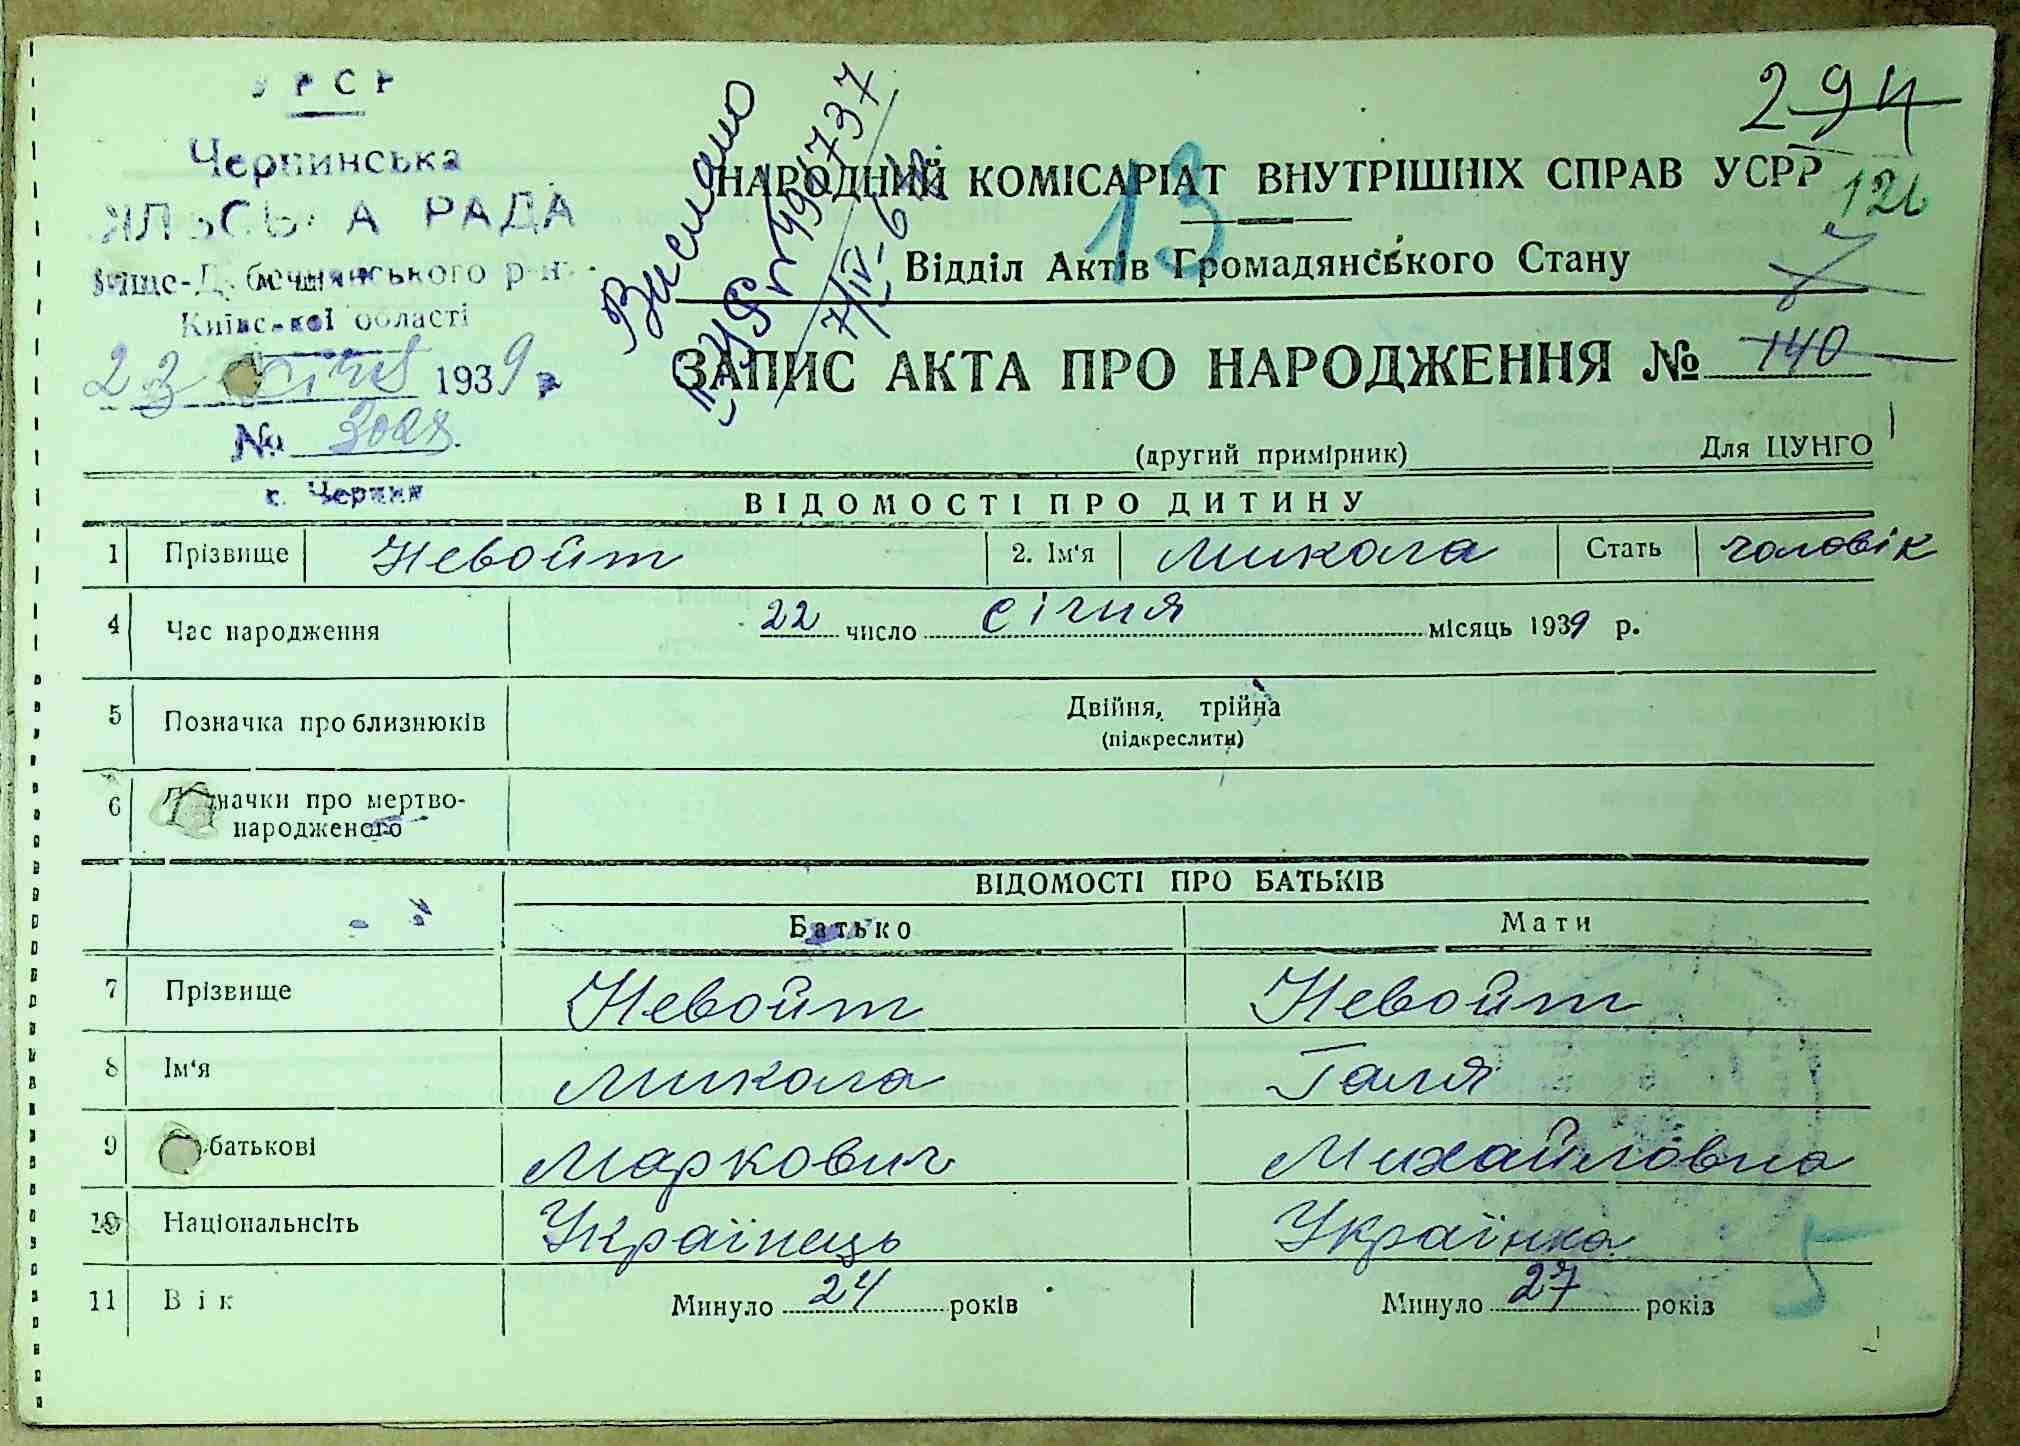 УРСР
Черпинська
РАДА
Київської області
23 січня 1939 р
№ 3028.
с. Черпин
Вислано
7/IV-
294
НАРОДНИЙ КОМІСАРІАТ ВНУТРІШНІХ СПРАВ УСРР
13
126
Відділ Актів Громадянського Стану
ЗАПИС АКТА ПРО НАРОДЖЕННЯ № 140
(другий примірник) Для ЦУНГО
ВІДОМОСТІ ПРО ДИТИНУ
1 Прізвище Невойт 2. Ім'я Микола Стать чоловік
4 Час народження 22 число січня місяць 1939 р.
5 Позначка про близнюків Двійня, трійня
(підкреслити)
6 Позначки про мертво-
народженого
ВІДОМОСТІ ПРО БАТЬКІВ
Батько Мати
7 Прізвище Невойт Невойт
8 Ім'я Микола Галя
9 батькові Маркович Михайловна
10 Національнсіть Українець Українка
5
11 Вік Минуло 24 років Минуло 27 років